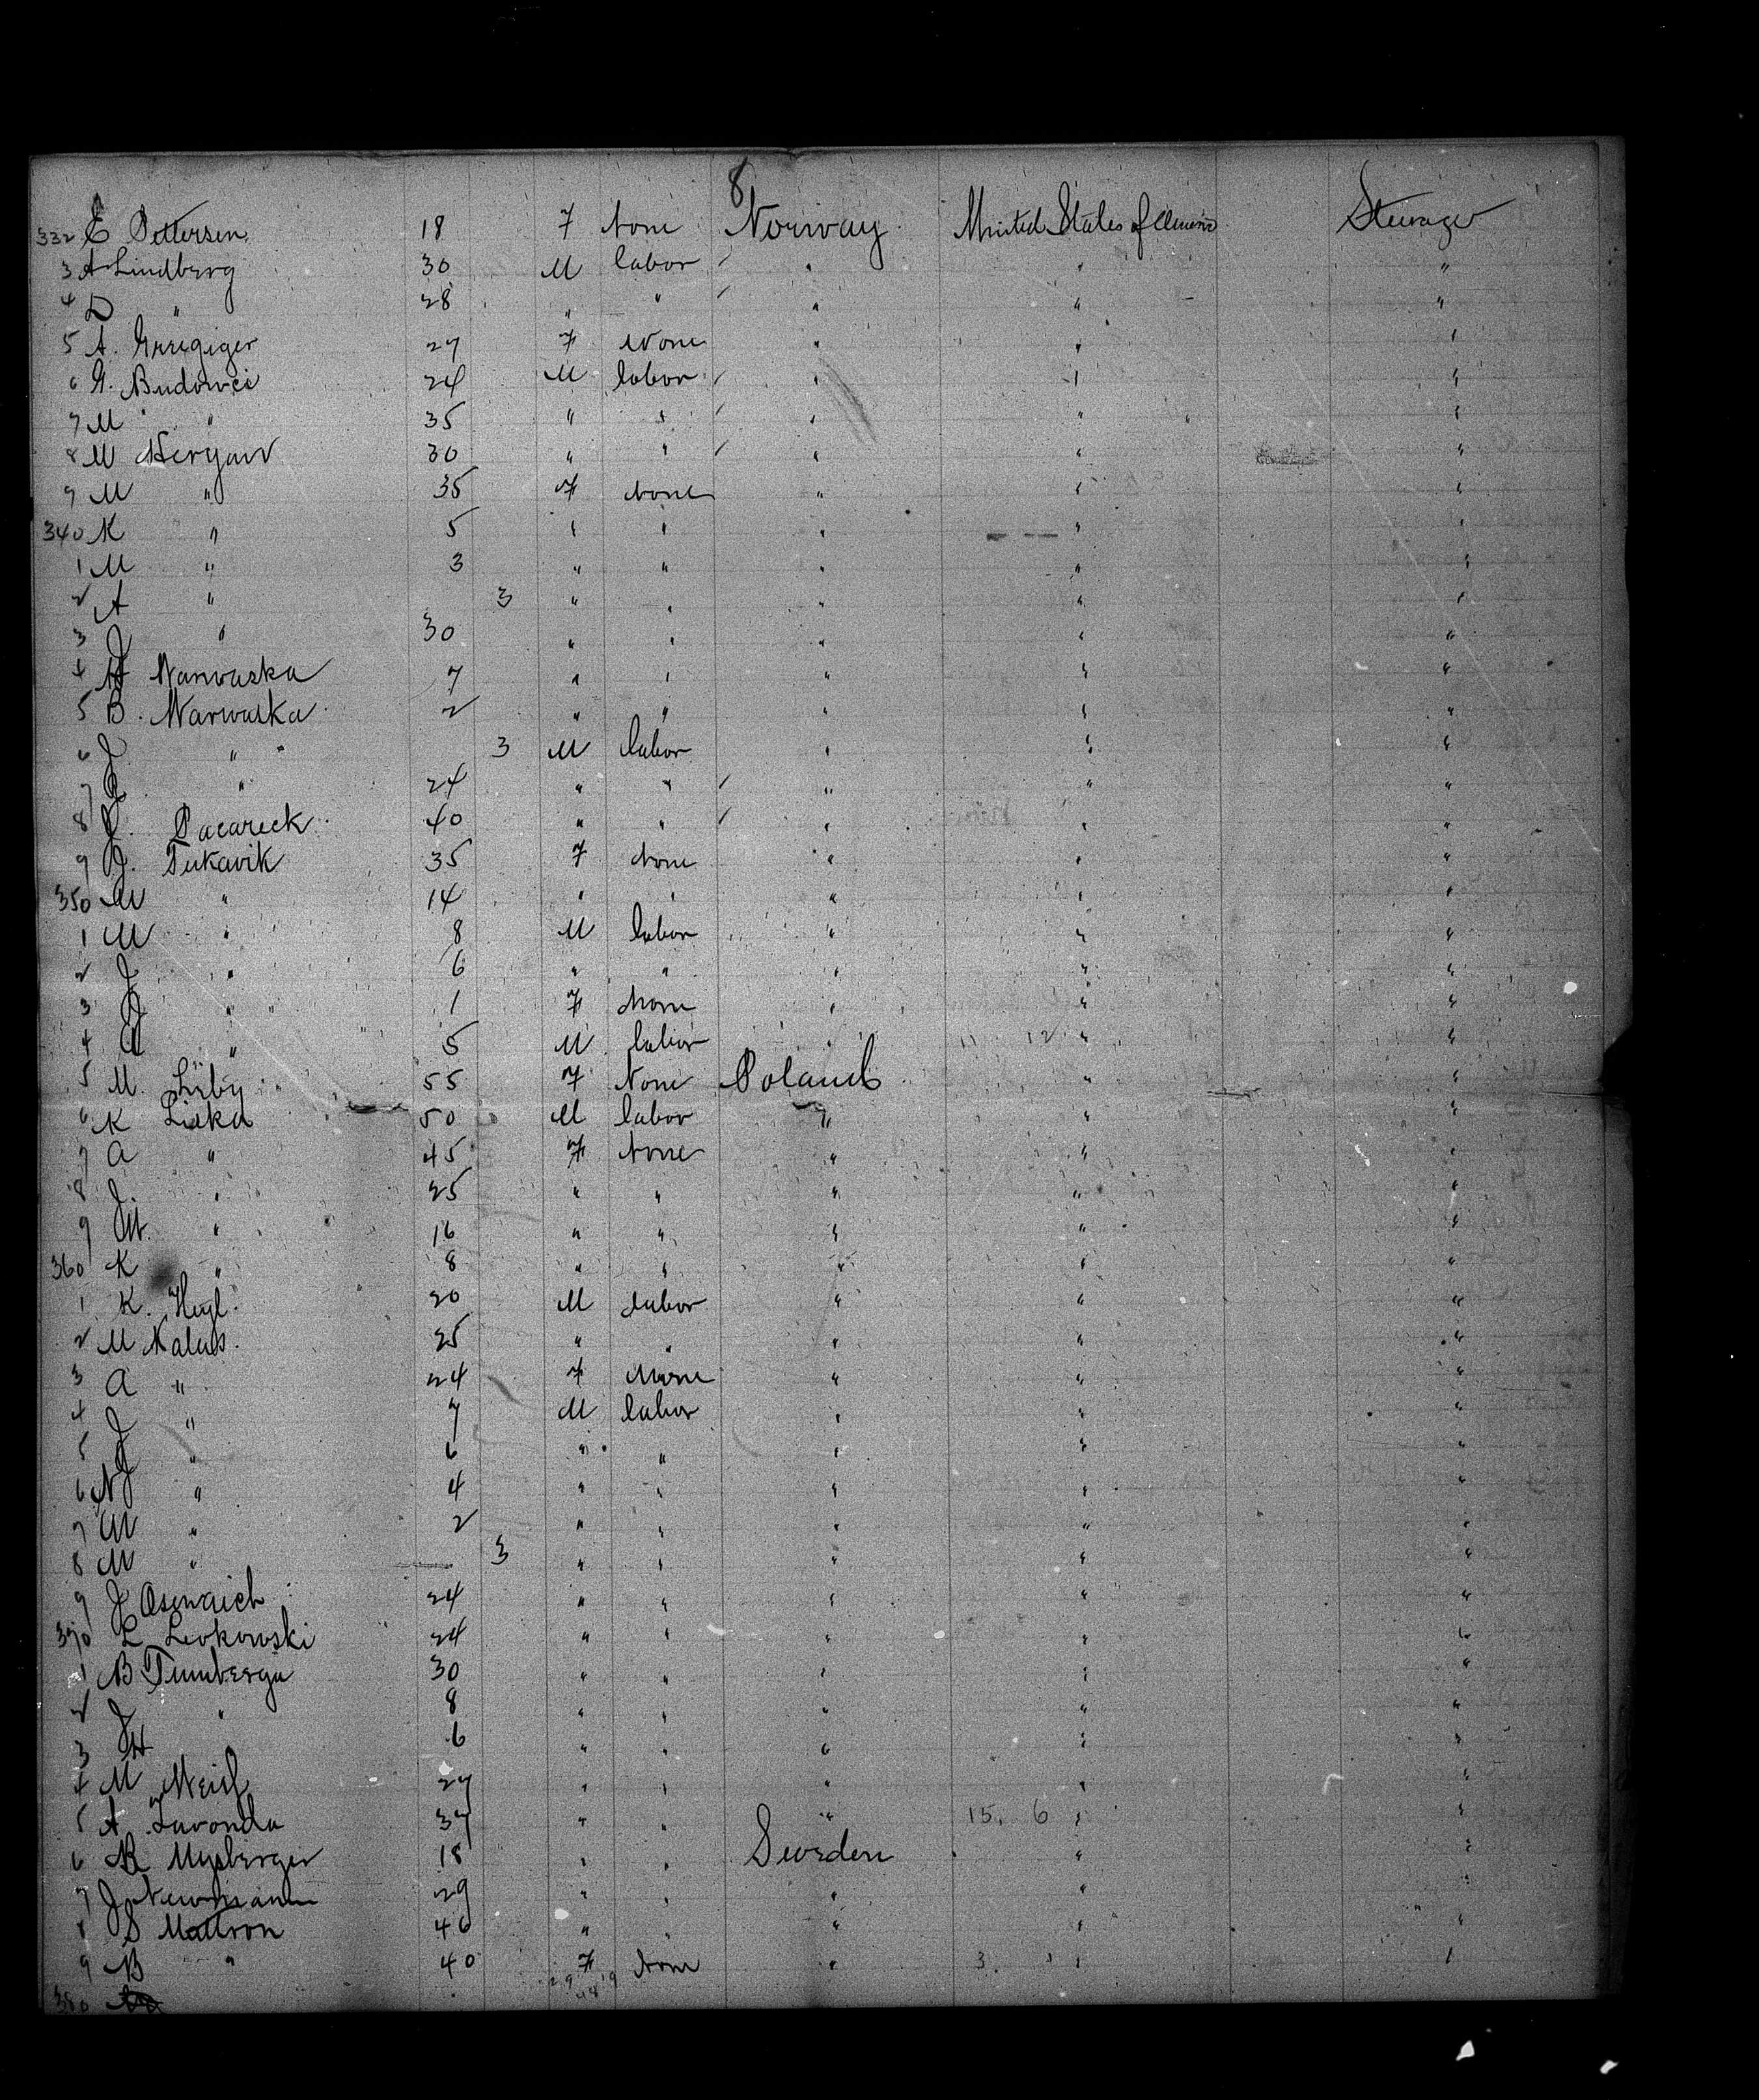 8
332 E Pettersen 18 F None Norway United States of America Steerage
3 A Lindberg 30 M labor " " "
4 D " 28 " " " " "
5 A. 27 F None " " "
6 G. Budowci 24 M labor " " "
7 M " 35 " " " " "
8 M 30 " " " " "
9 M " 35 F None " " "
340 K " 5 " " " " "
1 M " 3 " " " " "
2 A " 3 " " " " "
3 J " 30 " " " " "
4 A Narwaska 7 " " " " "
5 B. Narwaska 2 " " " " "
6 J " 3 M labor " " "
7 " 24 " " " " "
8 J. Pacareck 40 " " " " "
9 J. Tukavik 35 F None " " "
350 M " 14 " " " " "
1 M " 8 M labor " " "
2 J " 6 " " " " "
3 " 1 F None " " "
4 A " 5 M labor " 12 " "
5 M. 55 F None Poland " "
6 K Liska 50 M labor " " "
7 A " 45 F None " " "
8 J. " 25 " " " " "
9 M. " 16 " " " " "
360 K " 8 " " " " "
1 K. 20 M labor " " "
2 M Kalus 25 " " " " "
3 A " 24 F None " " "
4 J " 7 M labor " " "
5 J " 6 " " " " "
6 N " 4 " " " " "
7 M " 2 " " " " "
8 M " — 3 " " " " "
9 J 24 " " " " "
370 L Levkowski 24 " " " " "
1 B 30 " " " " "
2 J " 8 " " " " "
3 6 " " " " "
4 M Meisl 27 " " " " "
5 A Lavonda 37 " " " 15. 6 " "
6 18 " " Sweden " "
7 J Newmann 29 " " " " "
8 S Mattson 46 " " " " "
9 B " 40 F None " 3. " "
29 19
48
380